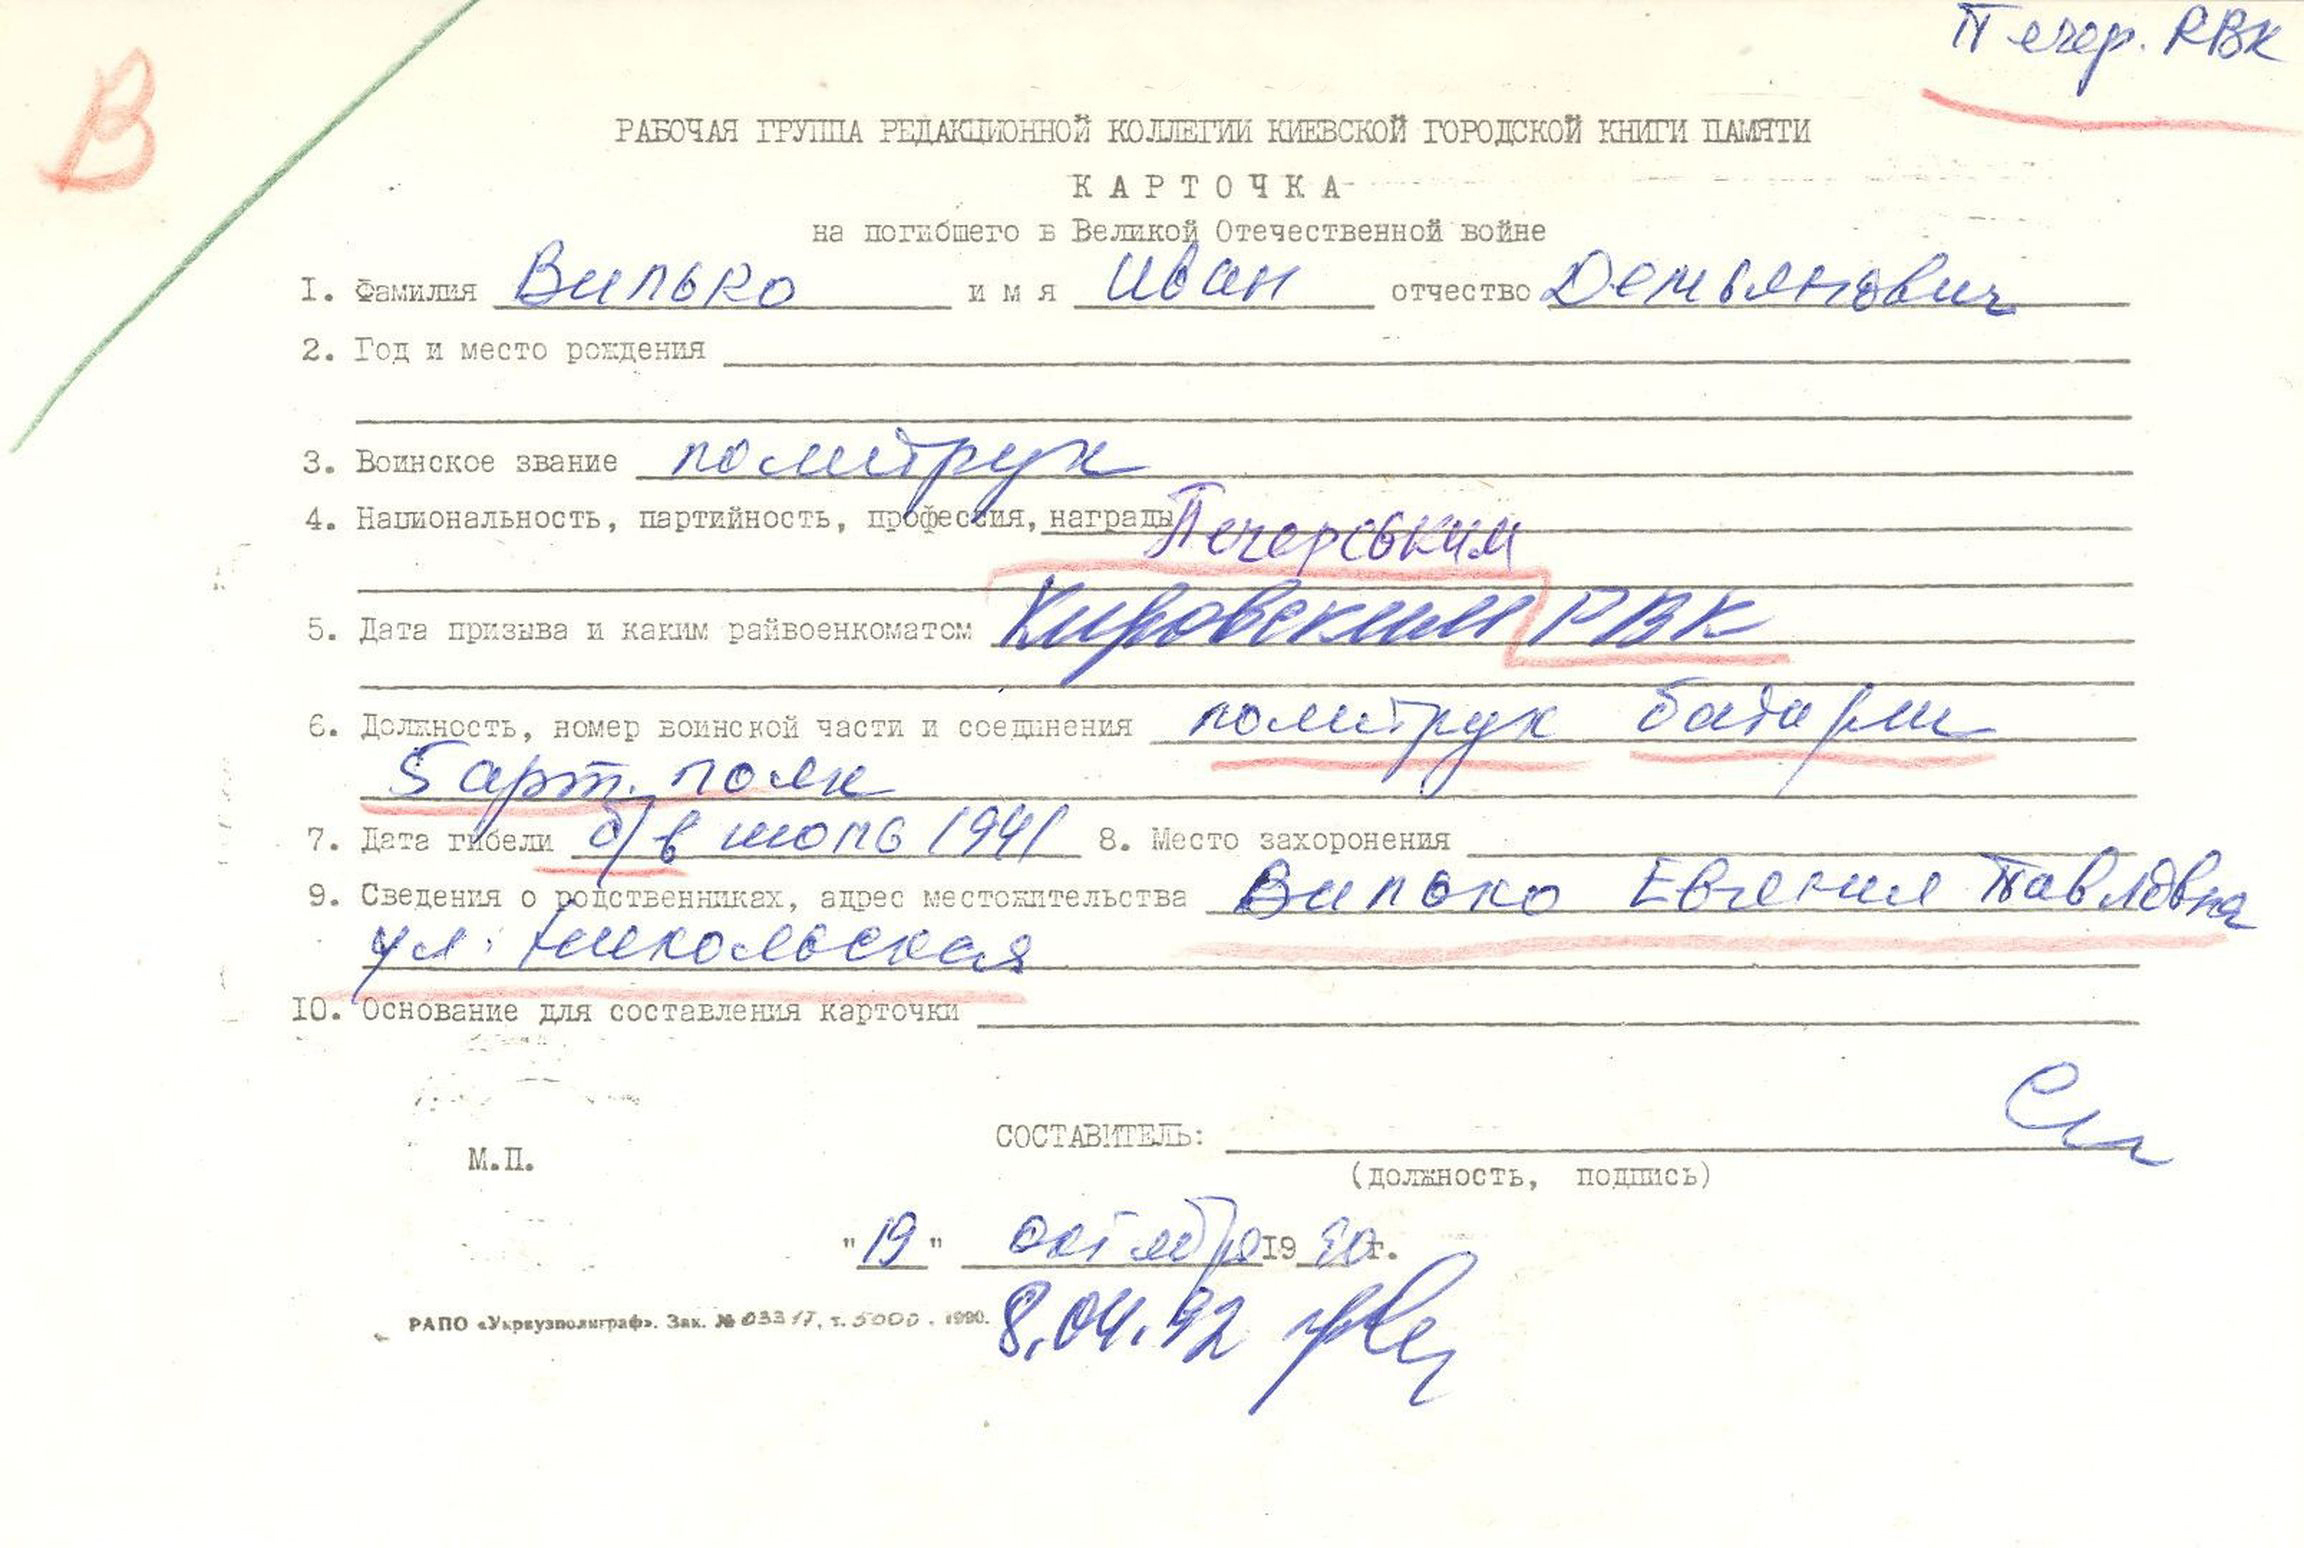 Печер. РВК
В
РАБОЧАЯ ГРУППА РЕДАКЦИОННОЙ КОЛЛЕГИИ КИЕВСКОЙ ГОРОДСКОЙ КНИГИ ПАМЯТИ
КАРТОЧКА
на погибшего в Великой Отечественной войне
1. Фамилия Вилько имя Иван отчество Демьянович
2. Год и место рождения
3. Воинское звание политрук
4. Национальность, партийность, профессия, награды
Печерським
5. Дата призыва и каким райвоенкоматом Кировским РВК
6. Должность, номер воинской части и соединения политрук батареи
5 арт. полк
7. Дата гибели б/в июль 1941 8. Место захоронения
9. Сведения о родственниках, адрес местожительства Вилько Евгения Павловна
ул. Никольская
10. Основание для составления карточки
СОСТАВИТЕЛЬ:
М.П.
(должность, подпись)
"19" октября 1990 г.
РАПО «Укрвузполиграф». Зак. № 03317, т. 5000. 1990.
8.04.92